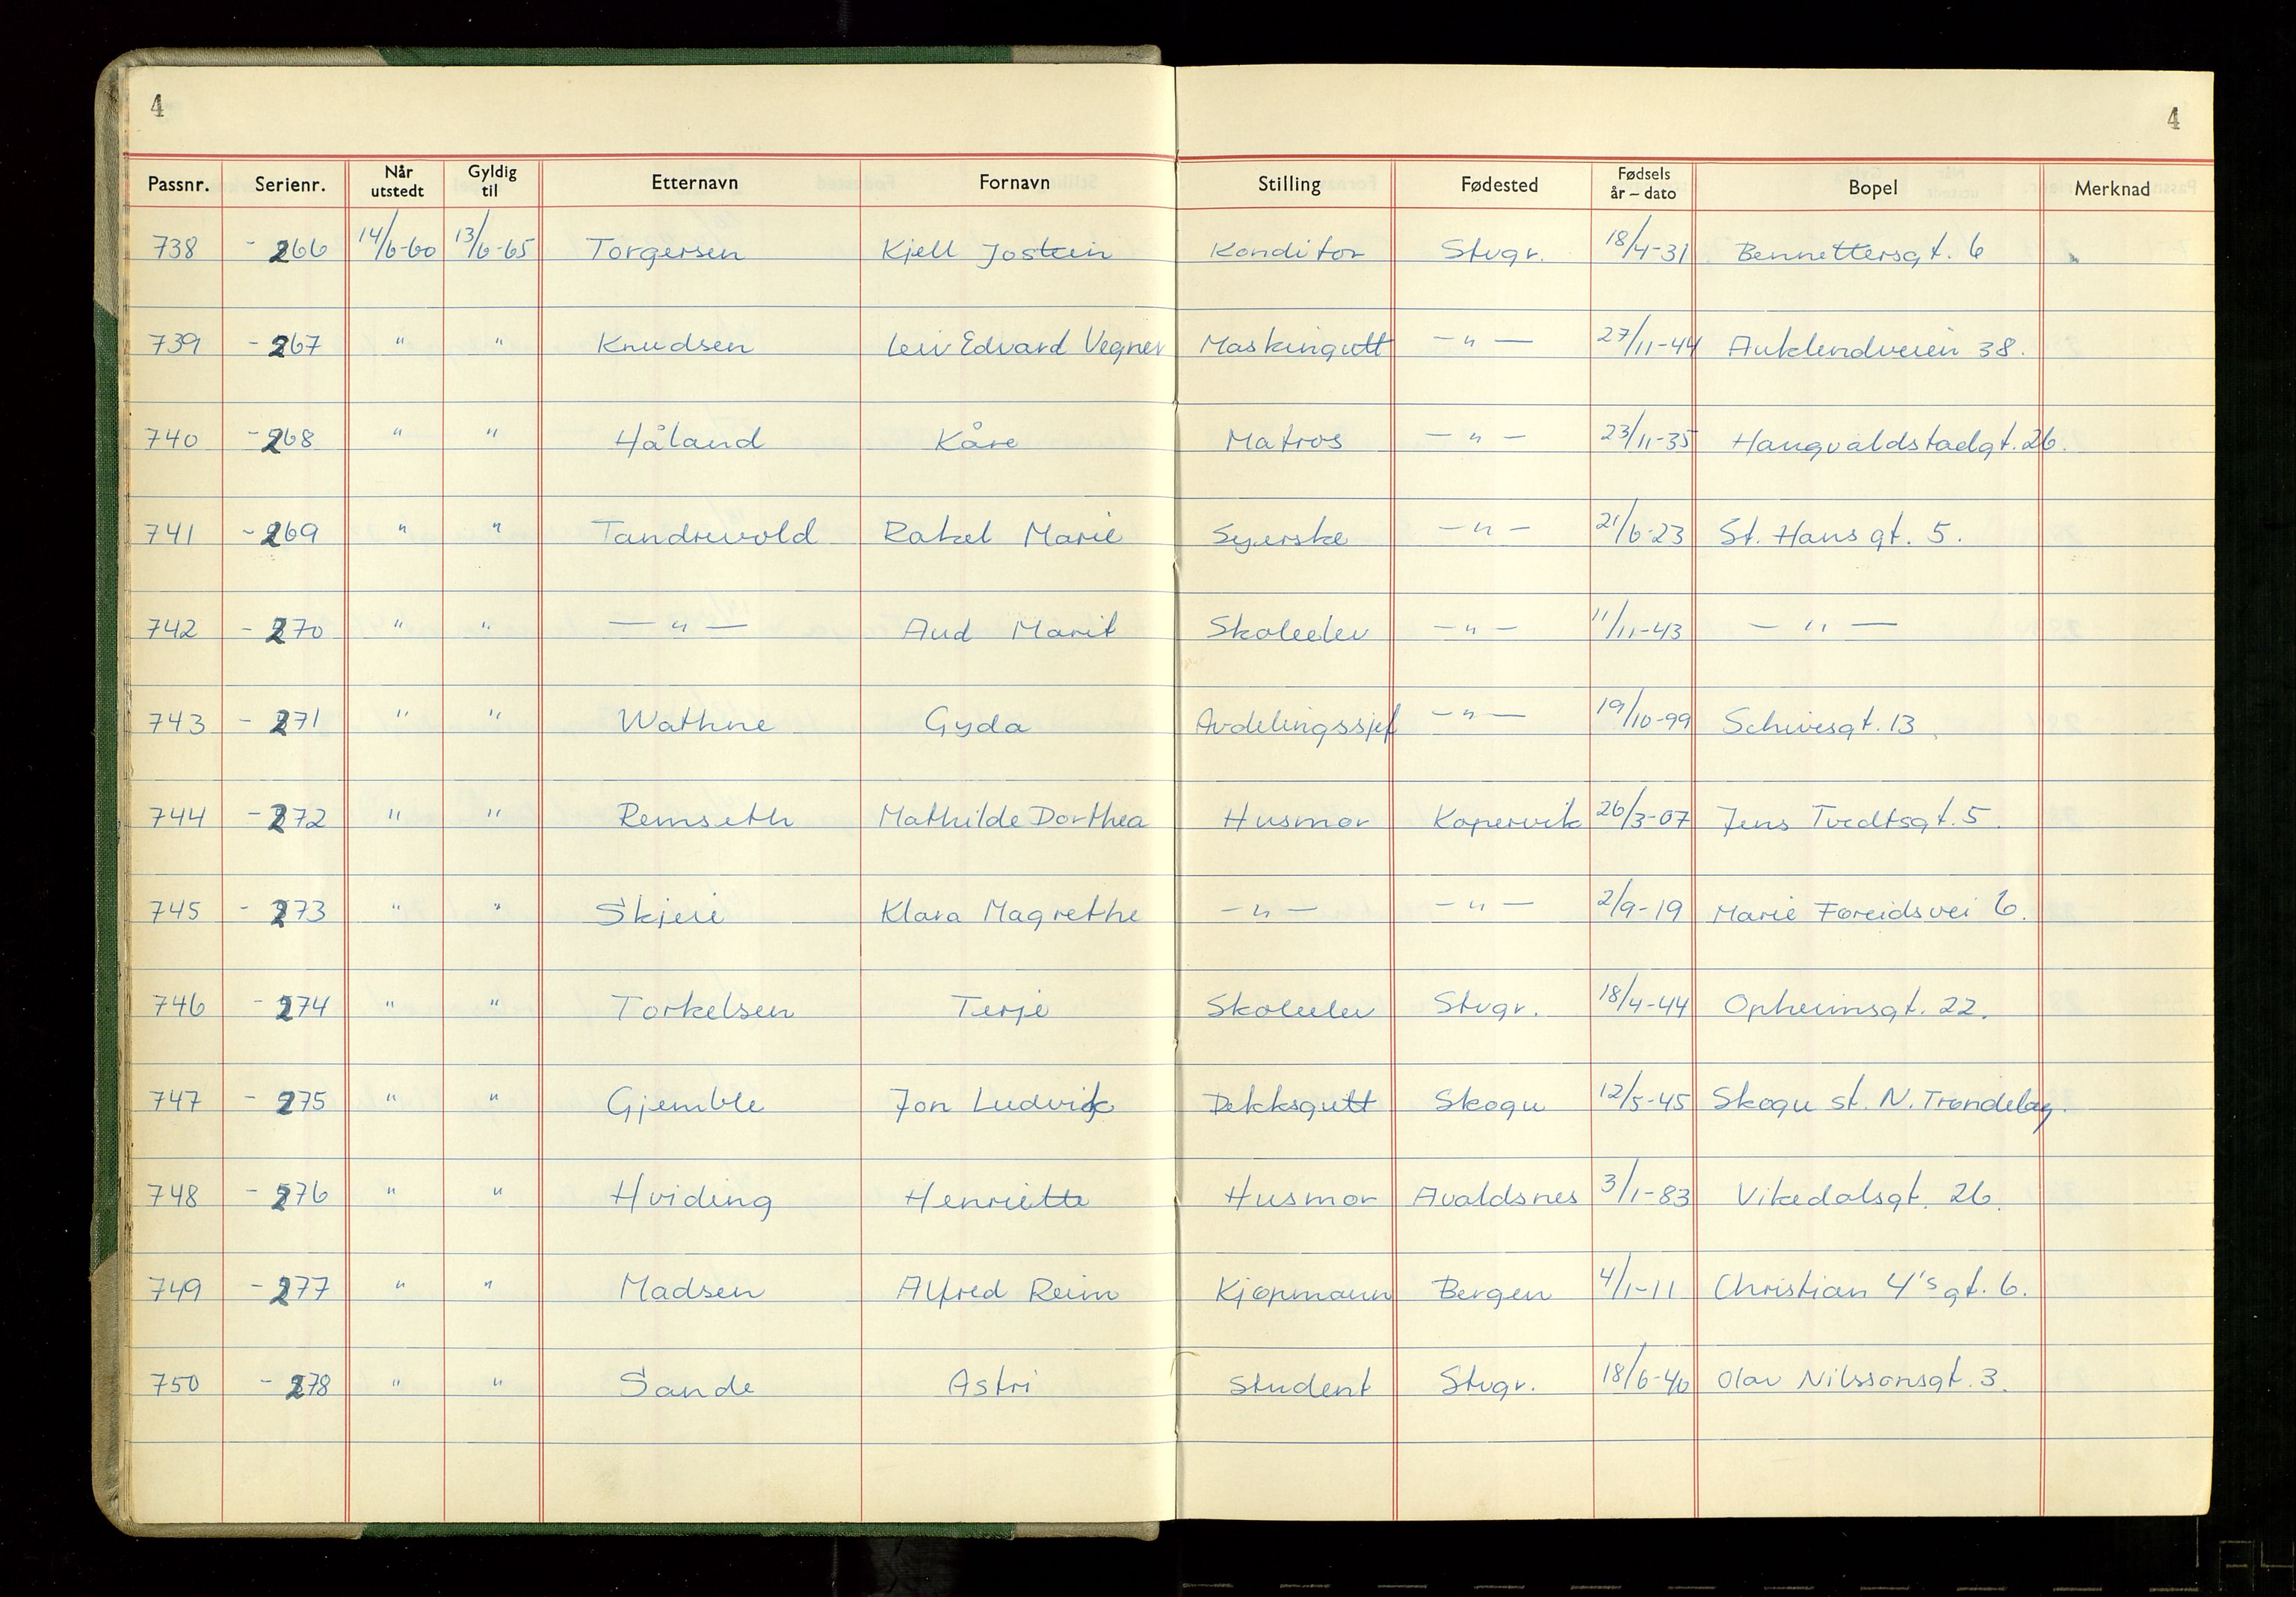 4 4
Passnr. Serienr. Når utstedt Gyldig til Etternavn Fornavn Stilling Fødested Fødsels år – dato Bopel Merknad
738 - 266 14/6-60 13/6-65 Torgersen Kjell Jostein Konditor Stvgr. 18/4-31 Bennettersgt. 6
739 - 267 " " Knudsen Leiv Edvard Vegner Maskingutt - " - 27/11-44 Auklendveien 38.
740 - 268 " " Håland Kåre Matros - " - 23/11-35 Haugvaldstadgt. 26.
741 - 269 " " Tandrevold Rakel Marie Syerske - " - 21/6-23 St. Hansgt. 5.
742 - 270 " " - " - Aud Marit Skoleelev - " - 11/11-43 - " -
743 - 271 " " Wathne Gyda Avdelingssjef - " - 19/10-99 Schivesgt. 13.
744 - 272 " " Remseth Mathilde Dorthea Husmor Kopervik 26/3-07 Jens Tvedtsgt. 5.
745 - 273 " " Skjeie Klara Magrethe - " - - " - 2/9-19 Marie Føreidsvei 6.
746 - 274 " " Torkelsen Terje Skoleelev Stvgr. 18/4-44 Opheimsgt. 22.
747 - 275 " " Gjemble Jon Ludvik Dekksgutt Skogn 12/5-45 Skogn st. N. Trøndelag.
748 - 276 " " Hviding Henriette Husmor Avaldsnes 3/1-83 Vikedalsgt. 26.
749 - 277 " " Madsen Alfred Reim Kjøpmann Bergen 4/1-11 Christian 4's gt. 6.
750 - 278 " " Sande Astri Student Stvgr. 18/6-40 Olav Nilssonsgt. 3.